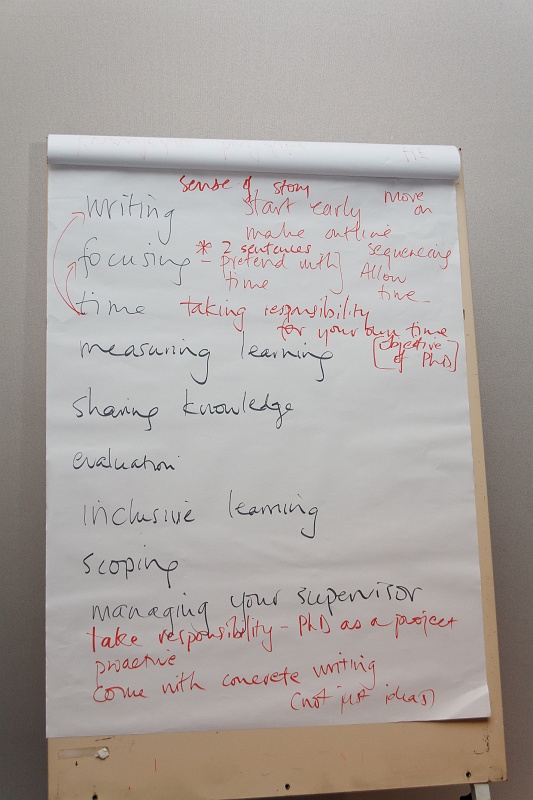 sense of story
writing start early move on
make outline
focusing * 2 sentences sequencing
- pretend with] Allow
time time
time taking responsibility
for your own time
measuring learning [objective
of PhD]
sharing knowledge
evaluation
inclusive learning
scoping
managing your supervisor
take responsibility - PhD as a project
proactive
come with concrete writing
(not just ideas)